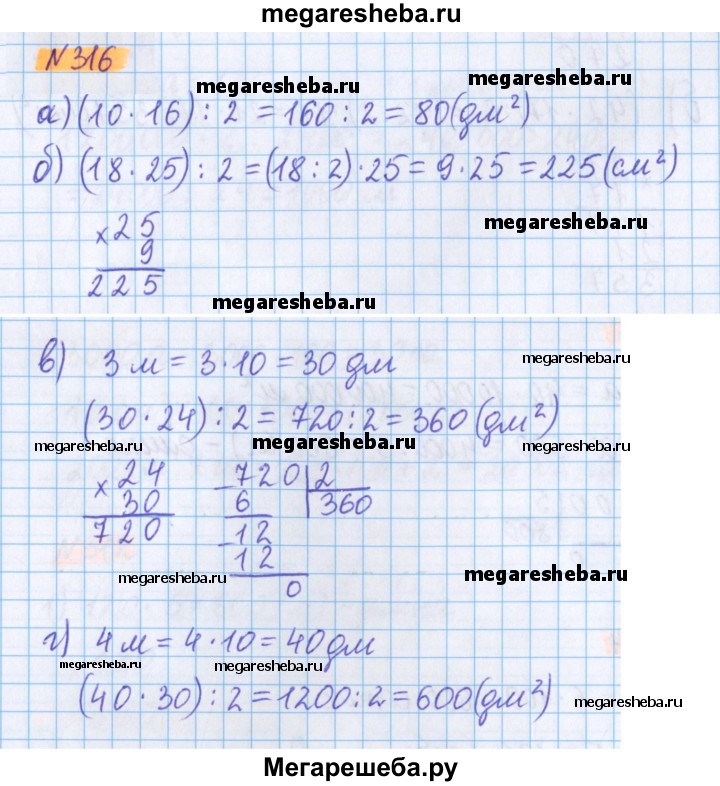 megaresheba.ru
N 316
megaresheba.ru megaresheba.ru
а) (10 · 16) : 2 = 160 : 2 = 80 (дм²)
б) (18 · 25) : 2 = (18 : 2) · 25 = 9 · 25 = 225 (см²)
× 25
9
225
megaresheba.ru
megaresheba.ru
в) 3 м = 3 · 10 = 30 дм
megaresheba.ru
(30 · 24) : 2 = 720 : 2 = 360 (дм²)
megaresheba.ru megaresheba.ru megaresheba.ru
× 24
30
720
− 720 | 2
6 360
− 12
12
0
megaresheba.ru megaresheba.ru
г) 4 м = 4 · 10 = 40 дм
megaresheba.ru megaresheba.ru
(40 · 30) : 2 = 1200 : 2 = 600 (дм²)
megaresheba.ru
Мегарешеба.ру